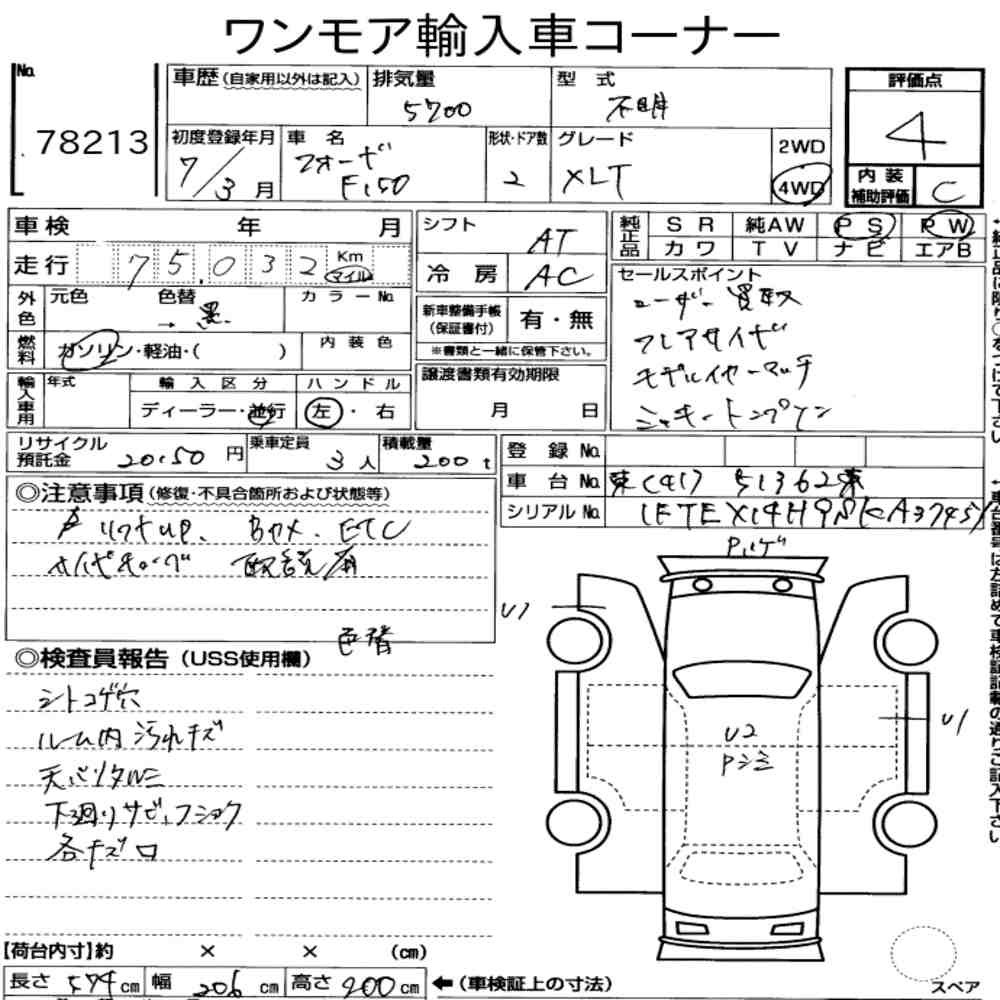 ワンモア輸入車コーナー
No. 78213
車歴(自家用以外は記入)
排気量 5700
型式 不明
評価点 4
初度登録年月 7/3月
車名 フォード F150
形状・ドア数 2
グレード XLT
2WD
4WD
内装補助評価 C
車検 年 月
シフト AT
純正品 SR 純AW PS PW
カワ TV ナビ エアB
走行 75,032 Km マイル
冷房 AC
セールスポイント
ユーザー買取
フレアサイド
モデルイヤーマッチ
ミッキートンプソン
外色 元色 色替 → 黒 カラーNo.
新車整備手帳(保証書付) 有・無
※書類と一緒に保管下さい。
燃料 ガソリン・軽油・( )
内装色
輸入車用 年式 輸入区分 ハンドル
ディーラー・並行 左・右
譲渡書類有効期限
月 日
リサイクル預託金 20150円
乗車定員 3人
積載量 200t
登録No.
車台No. 東[41] 51362東
シリアルNo. 1FTEX14H9SKA3745
◎注意事項(修復・不具合箇所および状態等)
リフトup. Bカメ. ETC
色替
◎検査員報告(USS使用欄)
シートコゲ穴
ルーム内汚れキズ
天バリタルミ
下廻りサビ、フショク
各キズ凹
Pハゲ
U1
U1
U2
Pシミ
【荷台内寸】約 × × (cm)
長さ 574cm 幅 206cm 高さ 200cm ←(車検証上の寸法)
スペア